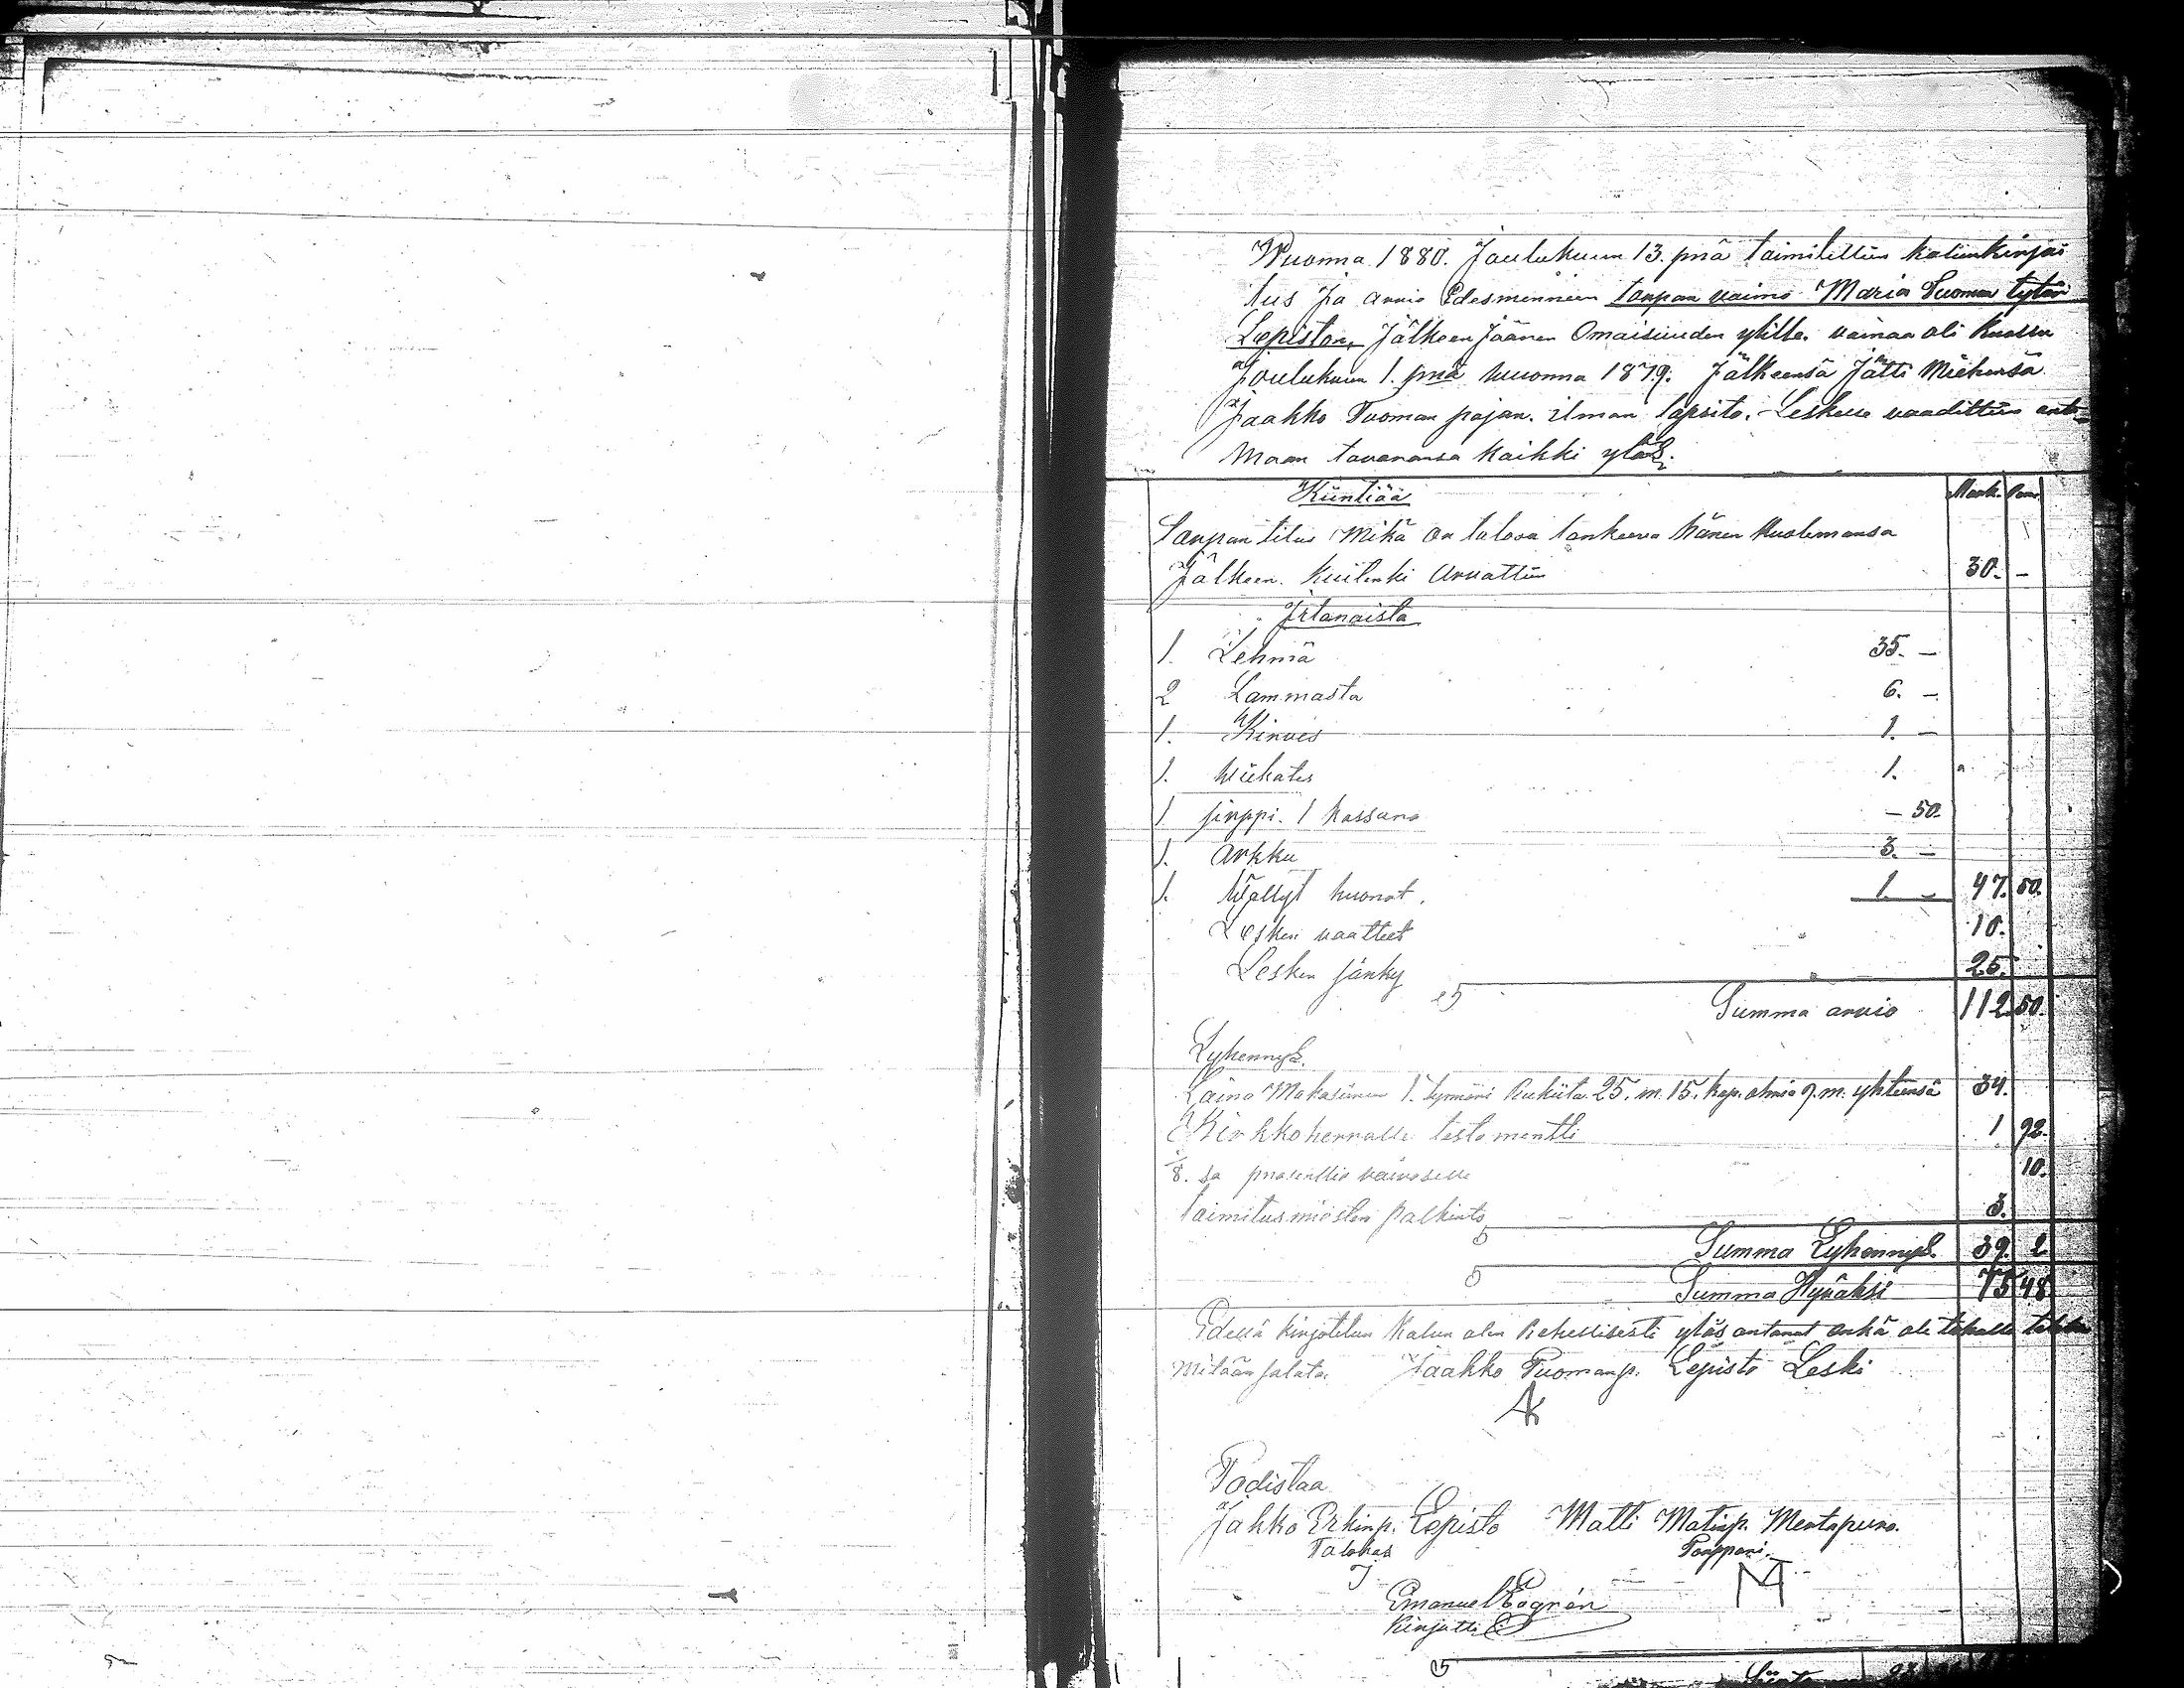 Wuonna 1880. Joulukuun 13. pnä toimitettiin kalunkirjoi
tus ja arvio Edesmennen torpan vaimo Maria Tuoman tytär
Lepiston, Jälkeen Jäänen Omaisuuden ylitte. vainaa oli kuollu
Joulukuun 1. pnä wuonna 1879. Jälkeensä Jätti Miehensä
Jaakko Tuoman pojan. ilman lapsito. Leskee vaadittiin anta
maan tavaransa kaikki ylös.
Kiintiää
Mark. Pen.
Torpan titus Mikä on talosa hänen kuolemansa
Jälkeen. kuitenki Arvattiin 30. -
Irtanaista
1. Lehmä 35. -
2 Lammasta 6. -
1. Kirves 1. -
1. wiikates 1.
1 1 kassara - 50.
1. Arkku 3. -
1. Wällyt huonot. 1. - 47. 50.
Lesken vaatteet 10.
Lesken sänky 25.
Summa arvio 112. 50.
Lyhennys.
Laina Makasiinin 1. tynnöri Rukiita 25. m. 15. kap. ohria 9. m. yhteensä 34.
Kirkkoherralle testamentti 1 92.
1/8. sa prosenttia vaivaselle 10.
toimitusmiesten palkinto 3.
Summa Lyhennys. 39. 2
Summa Hyväksi 75 48
Edellä kirjotetun kalun olen Rehellisesti ylös antanut enkä ole tahalla
Mitään salata. Jaakko Tuomanp. Lepistö Leski
Todistaa
Jakko Erkinp. Lepisto Matti Matinp. Mentapuro.
Talokas Torppari.
J M
Emanuel Eogrén
Kirjutti